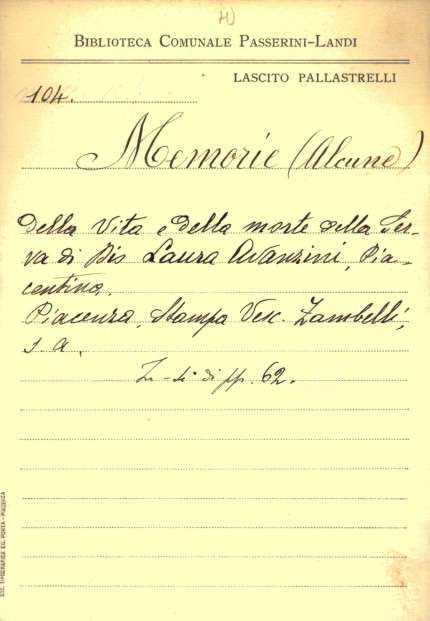 H)
BIBLIOTECA COMUNALE PASSERINI-LANDI
LASCITO PALLASTRELLI
104.
Memorie (Alcune)
della vita e della morte della Ser-
va di Dio Laura Avanzini, Pia-
centina.
Piacenza, Stampa Vesc. Zambelli,
s. a.
di pp. 62.
SOC. TIPOGRAFICA ED. PORTA - PIACENZA